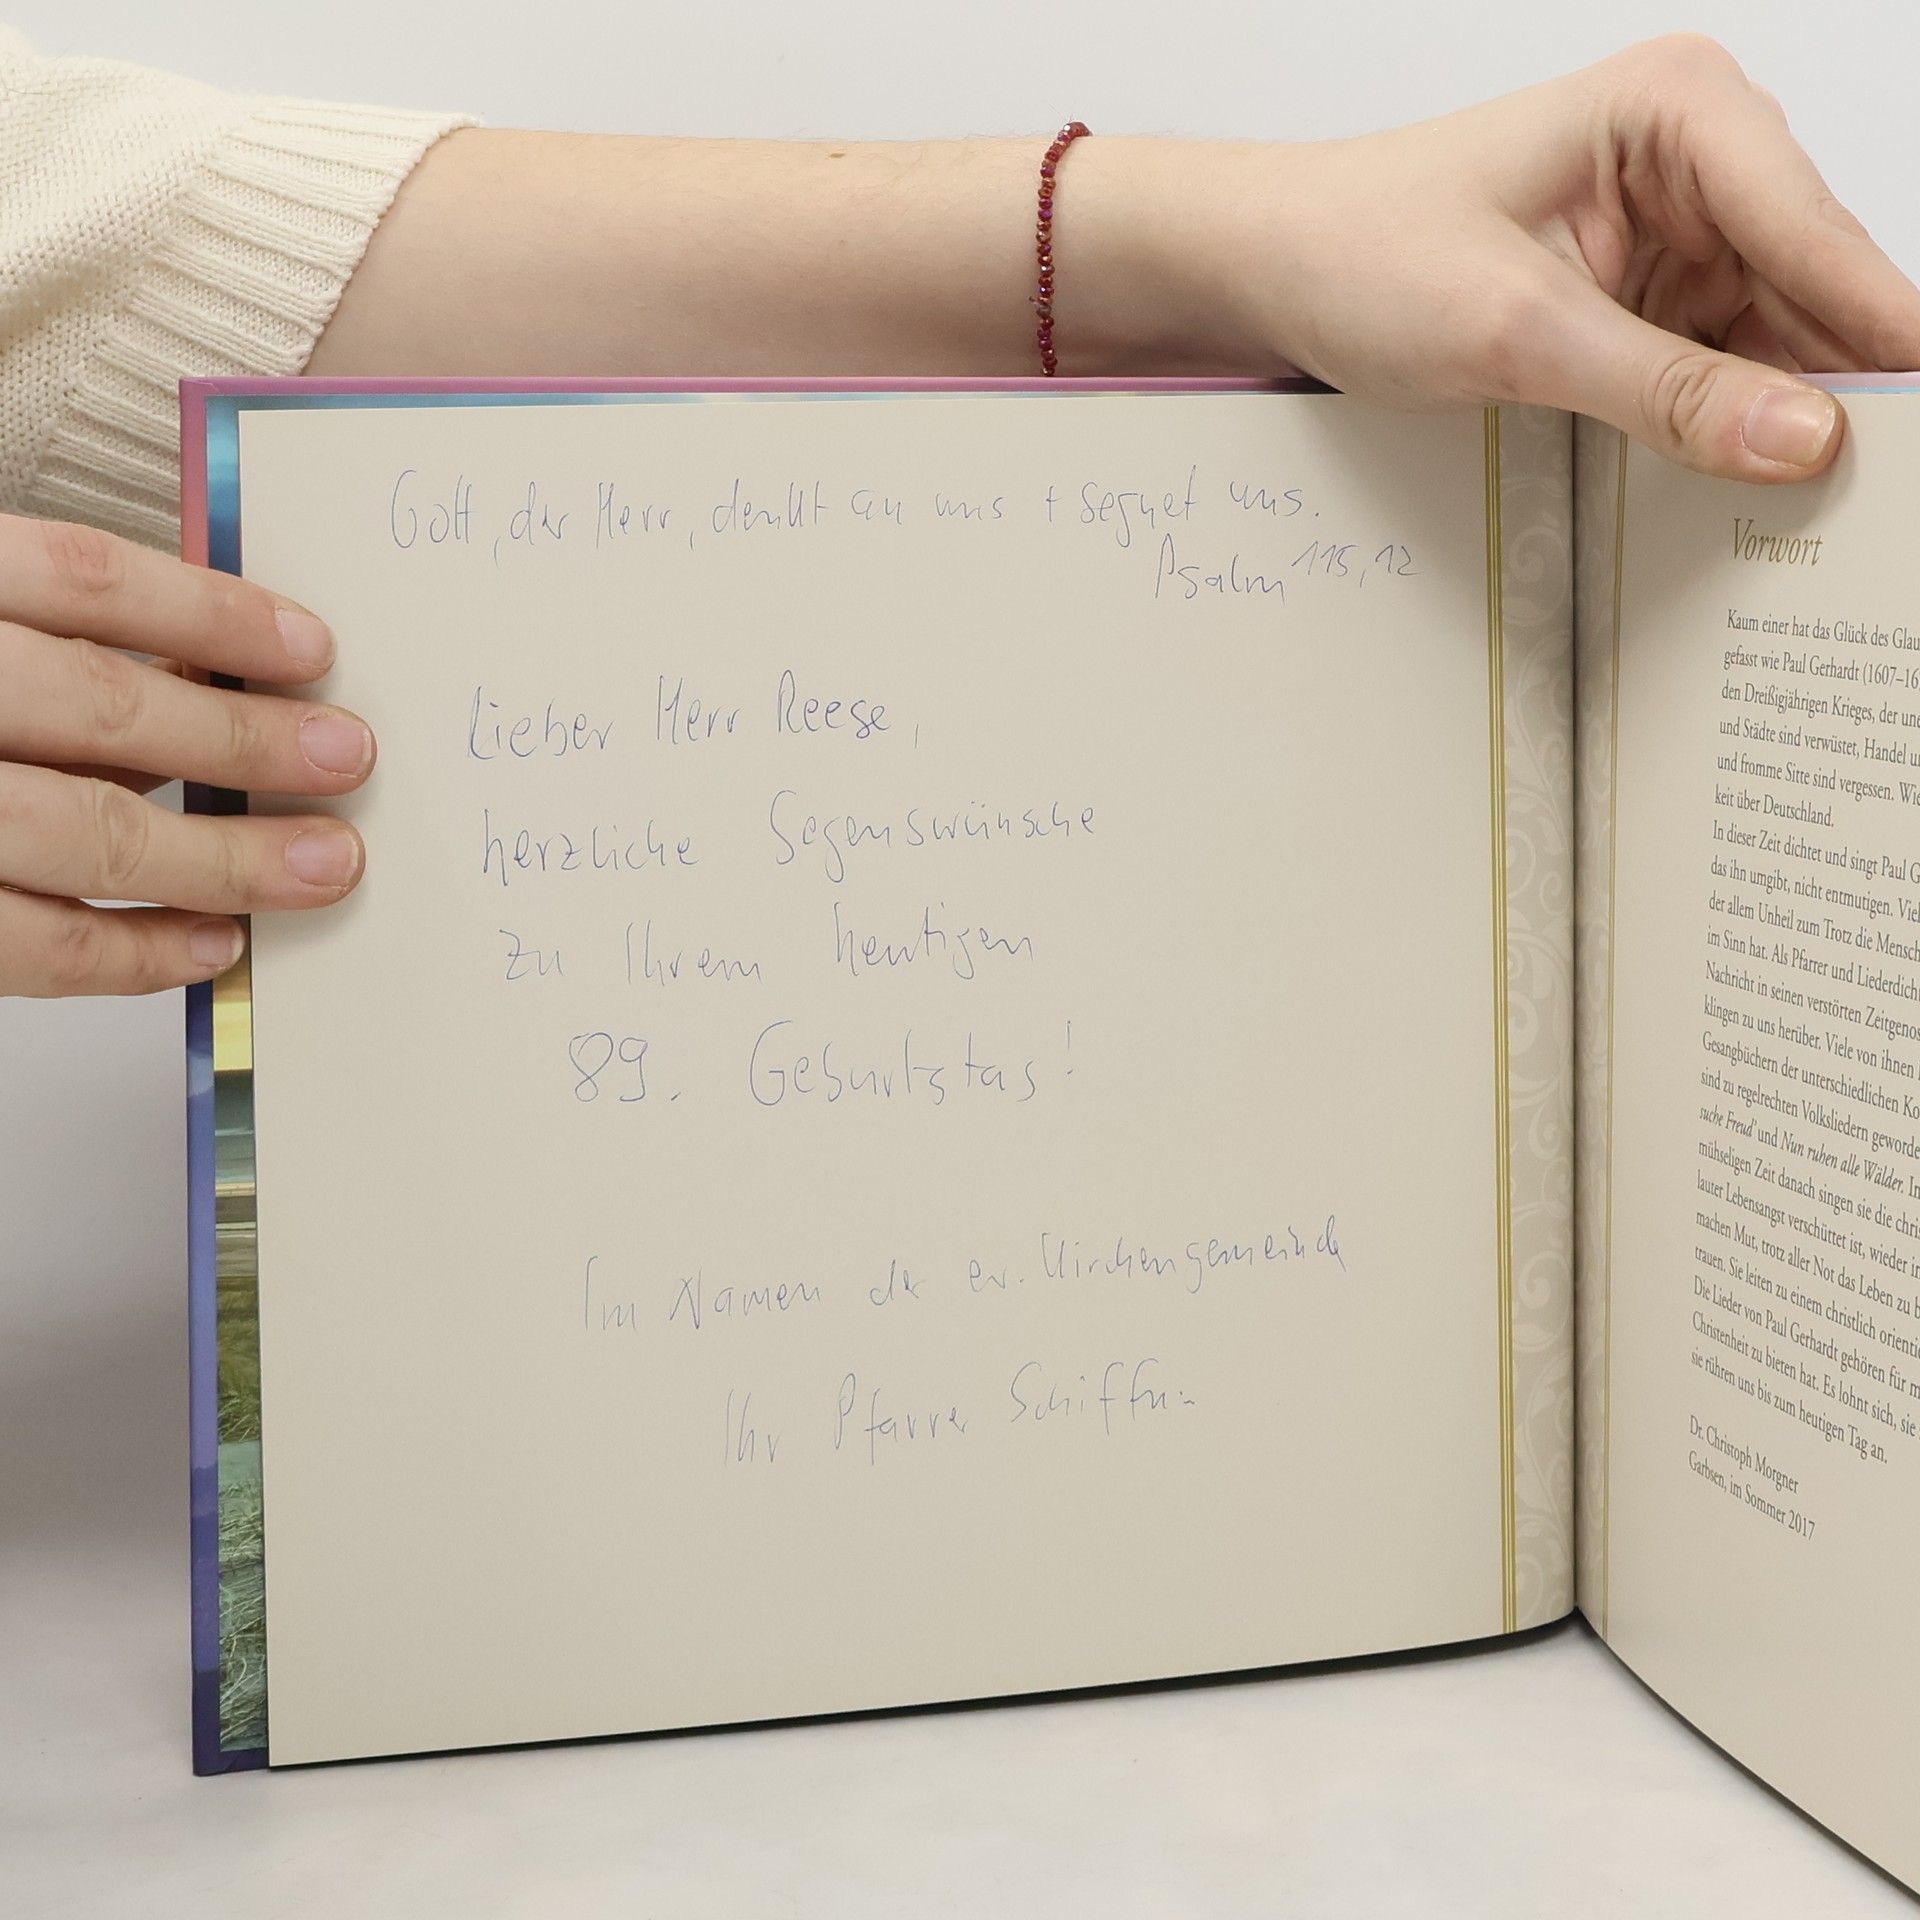 Gott, der Herr, denkt an uns + segnet uns.
Psalm 115,12
Lieber Herr Reese,
herzliche Segenswünsche
zu Ihrem heutigen
89. Geburtstag!
Im Namen der ev. Kirchengemeinde
Ihr Pfarrer
Vorwort
Kaum einer hat das Glück des Glau
gefasst wie Paul Gerhardt (1607–16
den Dreißigjährigen Krieges, der une
und Städte sind verwüstet, Handel u
und fromme Sitte sind vergessen. Wie
keit über Deutschland.
In dieser Zeit dichtet und singt Paul G
das ihn umgibt, nicht entmutigen. Viel
der allem Unheil zum Trotz die Mensch
im Sinn hat. Als Pfarrer und Liederdicht
Nachricht in seinen verstörten Zeitgenos
klingen zu uns herüber. Viele von ihnen
Gesangbüchern der unterschiedlichen Ko
sind zu regelrechten Volksliedern geworde
suche Freud' und Nun ruhen alle Wälder. In
mühseligen Zeit danach singen sie die chris
lauter Lebensangst verschüttet ist, wieder in
machen Mut, trotz aller Not das Leben zu b
trauen. Sie leiten zu einem christlich orientie
Die Lieder von Paul Gerhardt gehören für m
Christenheit zu bieten hat. Es lohnt sich, sie
sie rühren uns bis zum heutigen Tag an.
Dr. Christoph Morgner
Garbsen, im Sommer 2017